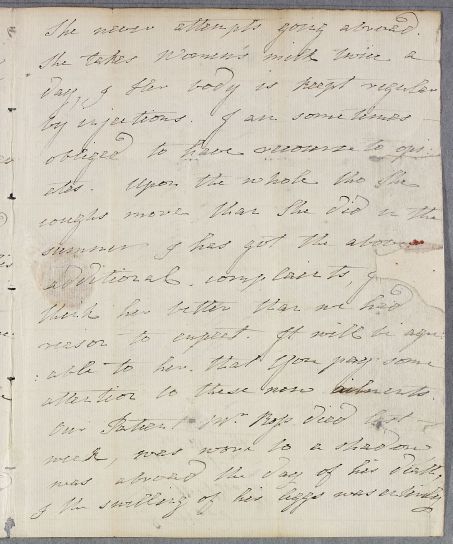 She never attempts going abroad.
She takes Women's milk twice a
day, & Her body is kept regular
by injections. I am sometimes
obliged to have recourse to opi-
ates. Upon the whole tho' She
coughs more than She did in the
summer & has got the above
additional complaints, I
think her better than we had
reason to expect. It will be agre-
:able to her, that You pay some
attention to these new ailments.
Our Patient Mr. Ross died last
week, was worn to a shadow
was abroad the day of his death,
& the swelling of his Leggs was entirely